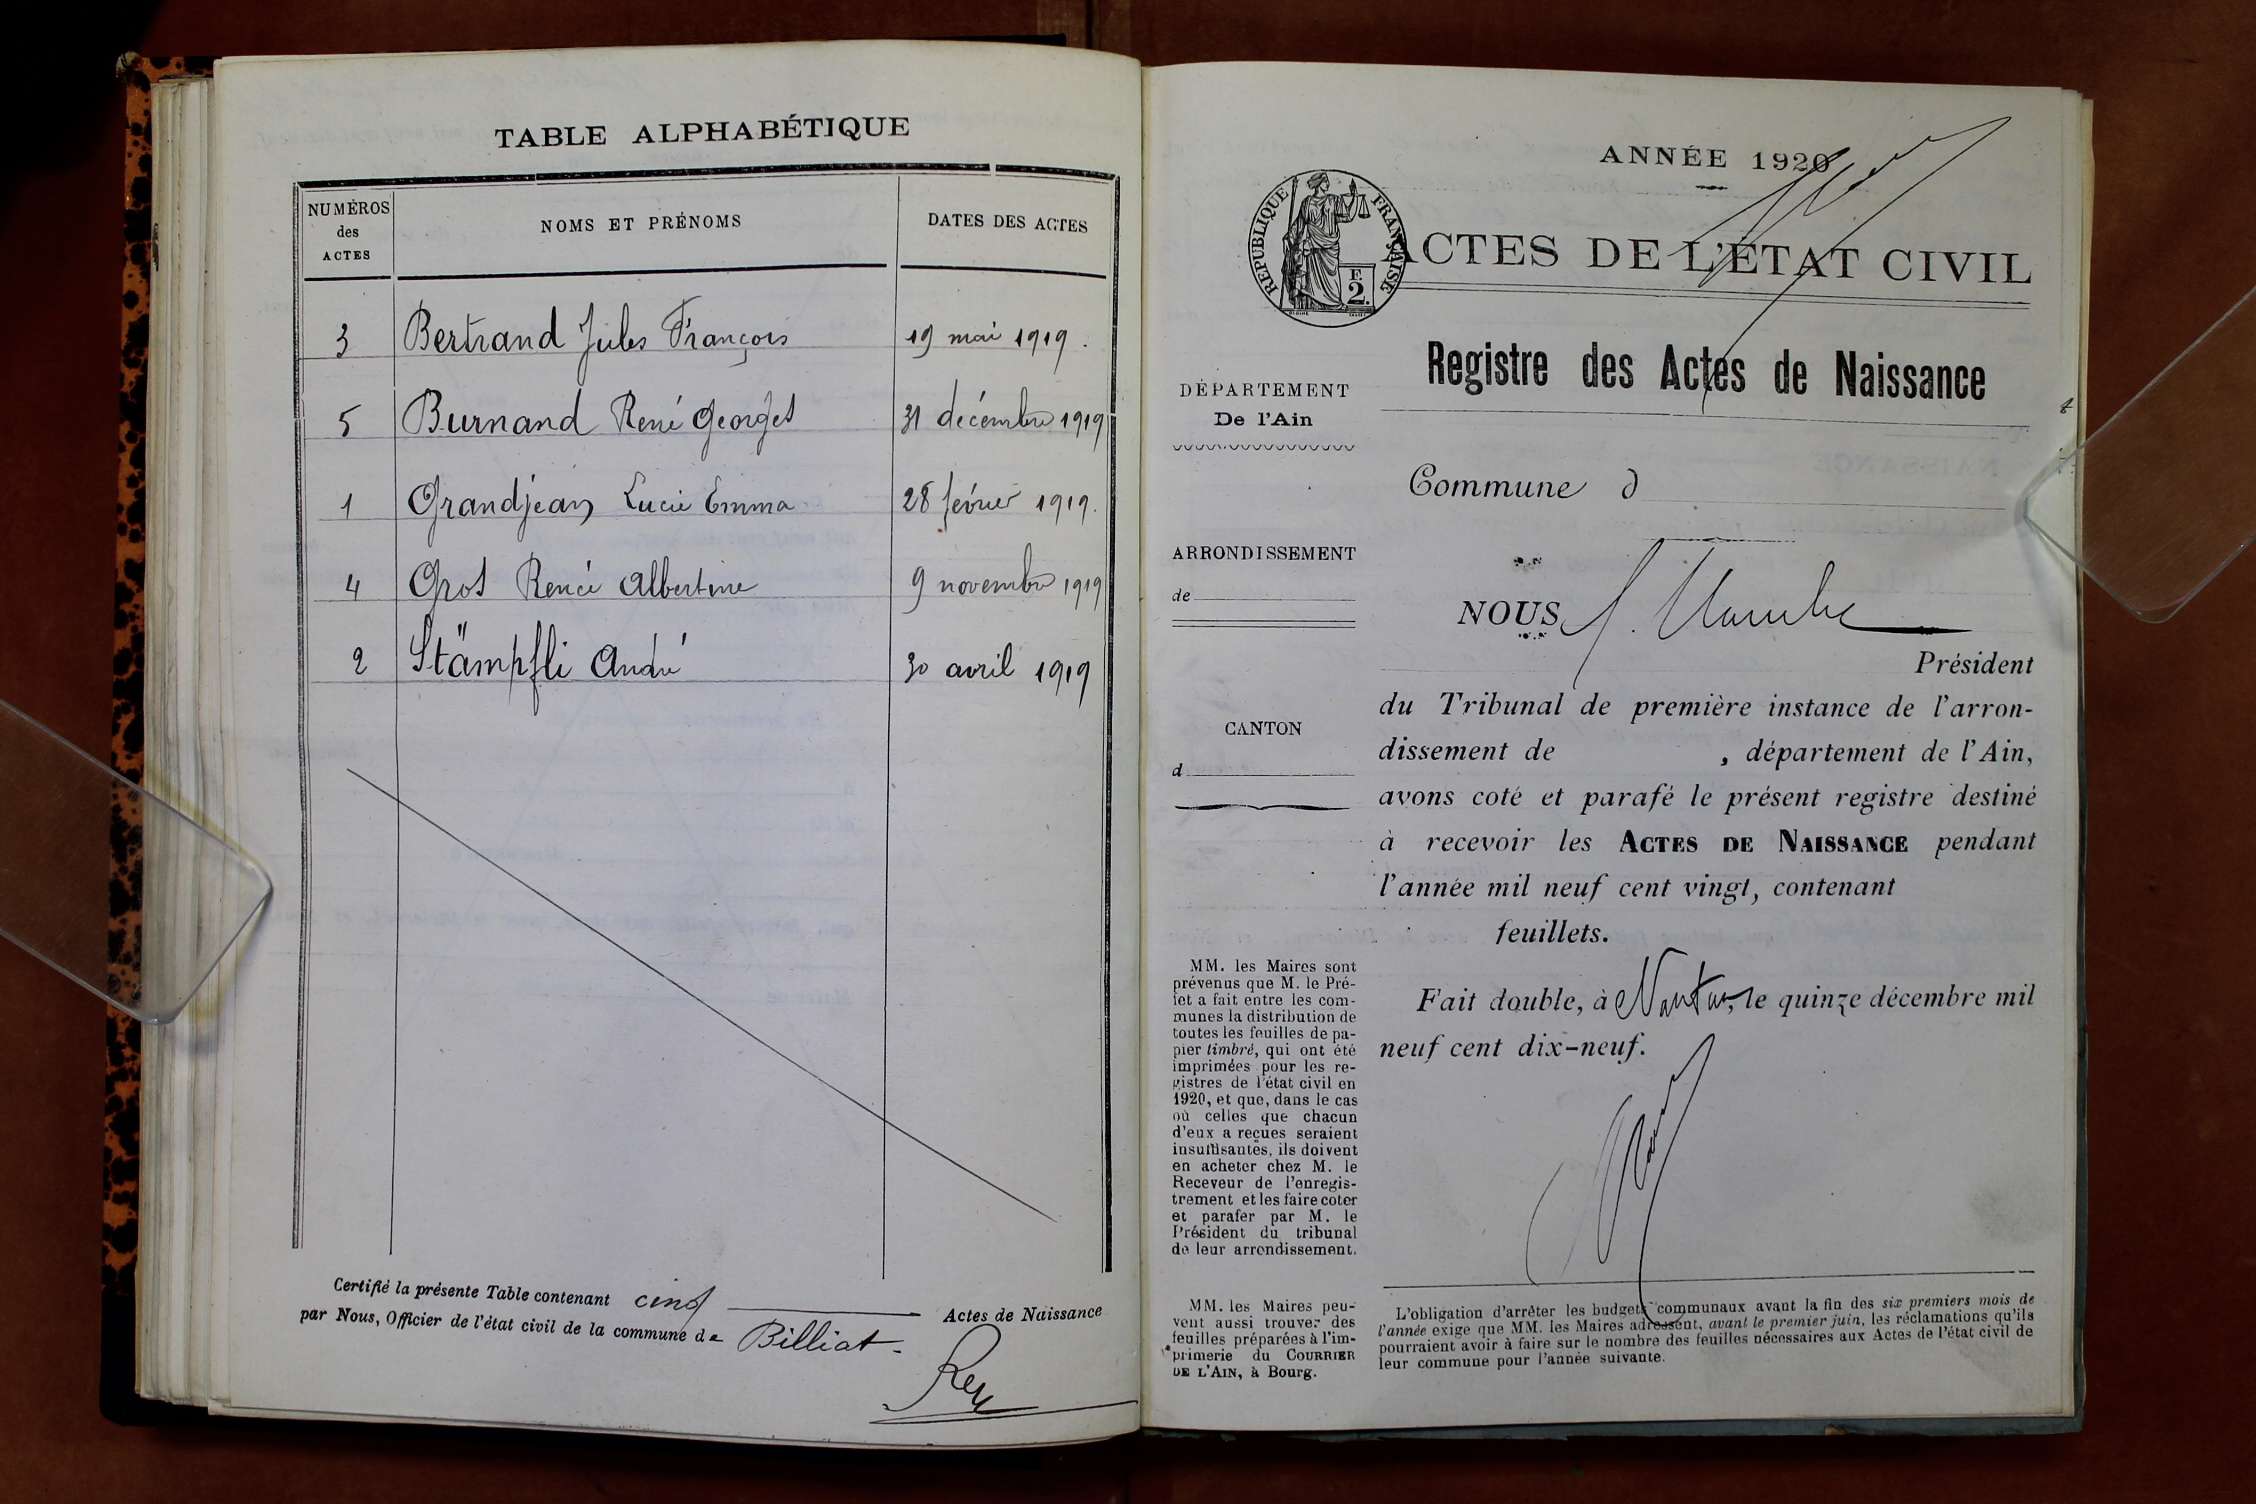 TABLE ALPHABÉTIQUE
NUMÉROS des ACTES
NOMS ET PRÉNOMS
DATES DES ACTES
3 Bertrand Jules François 19 mai 1919.
5 Burnand René Georges 31 décembre 1919
1 Grandjean Lucie Emma 28 février 1919.
4 Gros Renée Albertine 9 novembre 1919
2 Stämpfli André 30 avril 1919
Certifié la présente Table contenant cinq Actes de Naissance
par Nous, Officier de l'état civil de la commune de Billiat.
Rey
ANNÉE 1920
RÉPUBLIQUE FRANÇAISE
F.
2.
ACTES DE L'ÉTAT CIVIL
Registre des Actes de Naissance
DÉPARTEMENT
De l'Ain
ARRONDISSEMENT
de
CANTON
d
MM. les Maires sont
prévenus que M. le Pré-
fet a fait entre les com-
munes la distribution de
toutes les feuilles de pa-
pier timbré, qui ont été
imprimées pour les re-
gistres de l'état civil en
1920, et que, dans le cas
où celles que chacun
d'eux a reçues seraient
insuffisantes, ils doivent
en acheter chez M. le
Receveur de l'enregis-
trement et les faire coter
et parafer par M. le
Président du tribunal
de leur arrondissement.
MM. les Maires peu-
vent aussi trouver des
feuilles préparées à l'im-
primerie du COURRIER
DE L'AIN, à Bourg.
Commune d
NOUS
Président
du Tribunal de première instance de l'arron-
dissement de , département de l'Ain,
avons coté et parafé le présent registre destiné
à recevoir les ACTES DE NAISSANCE pendant
l'année mil neuf cent vingt, contenant
feuillets.
Fait double, à Nantua, le quinze décembre mil
neuf cent dix-neuf.
L'obligation d'arrêter les budgets communaux avant la fin des six premiers mois de
l'année exige que MM. les Maires adressent, avant le premier juin, les réclamations qu'ils
pourraient avoir à faire sur le nombre des feuilles nécessaires aux Actes de l'état civil de
leur commune pour l'année suivante.